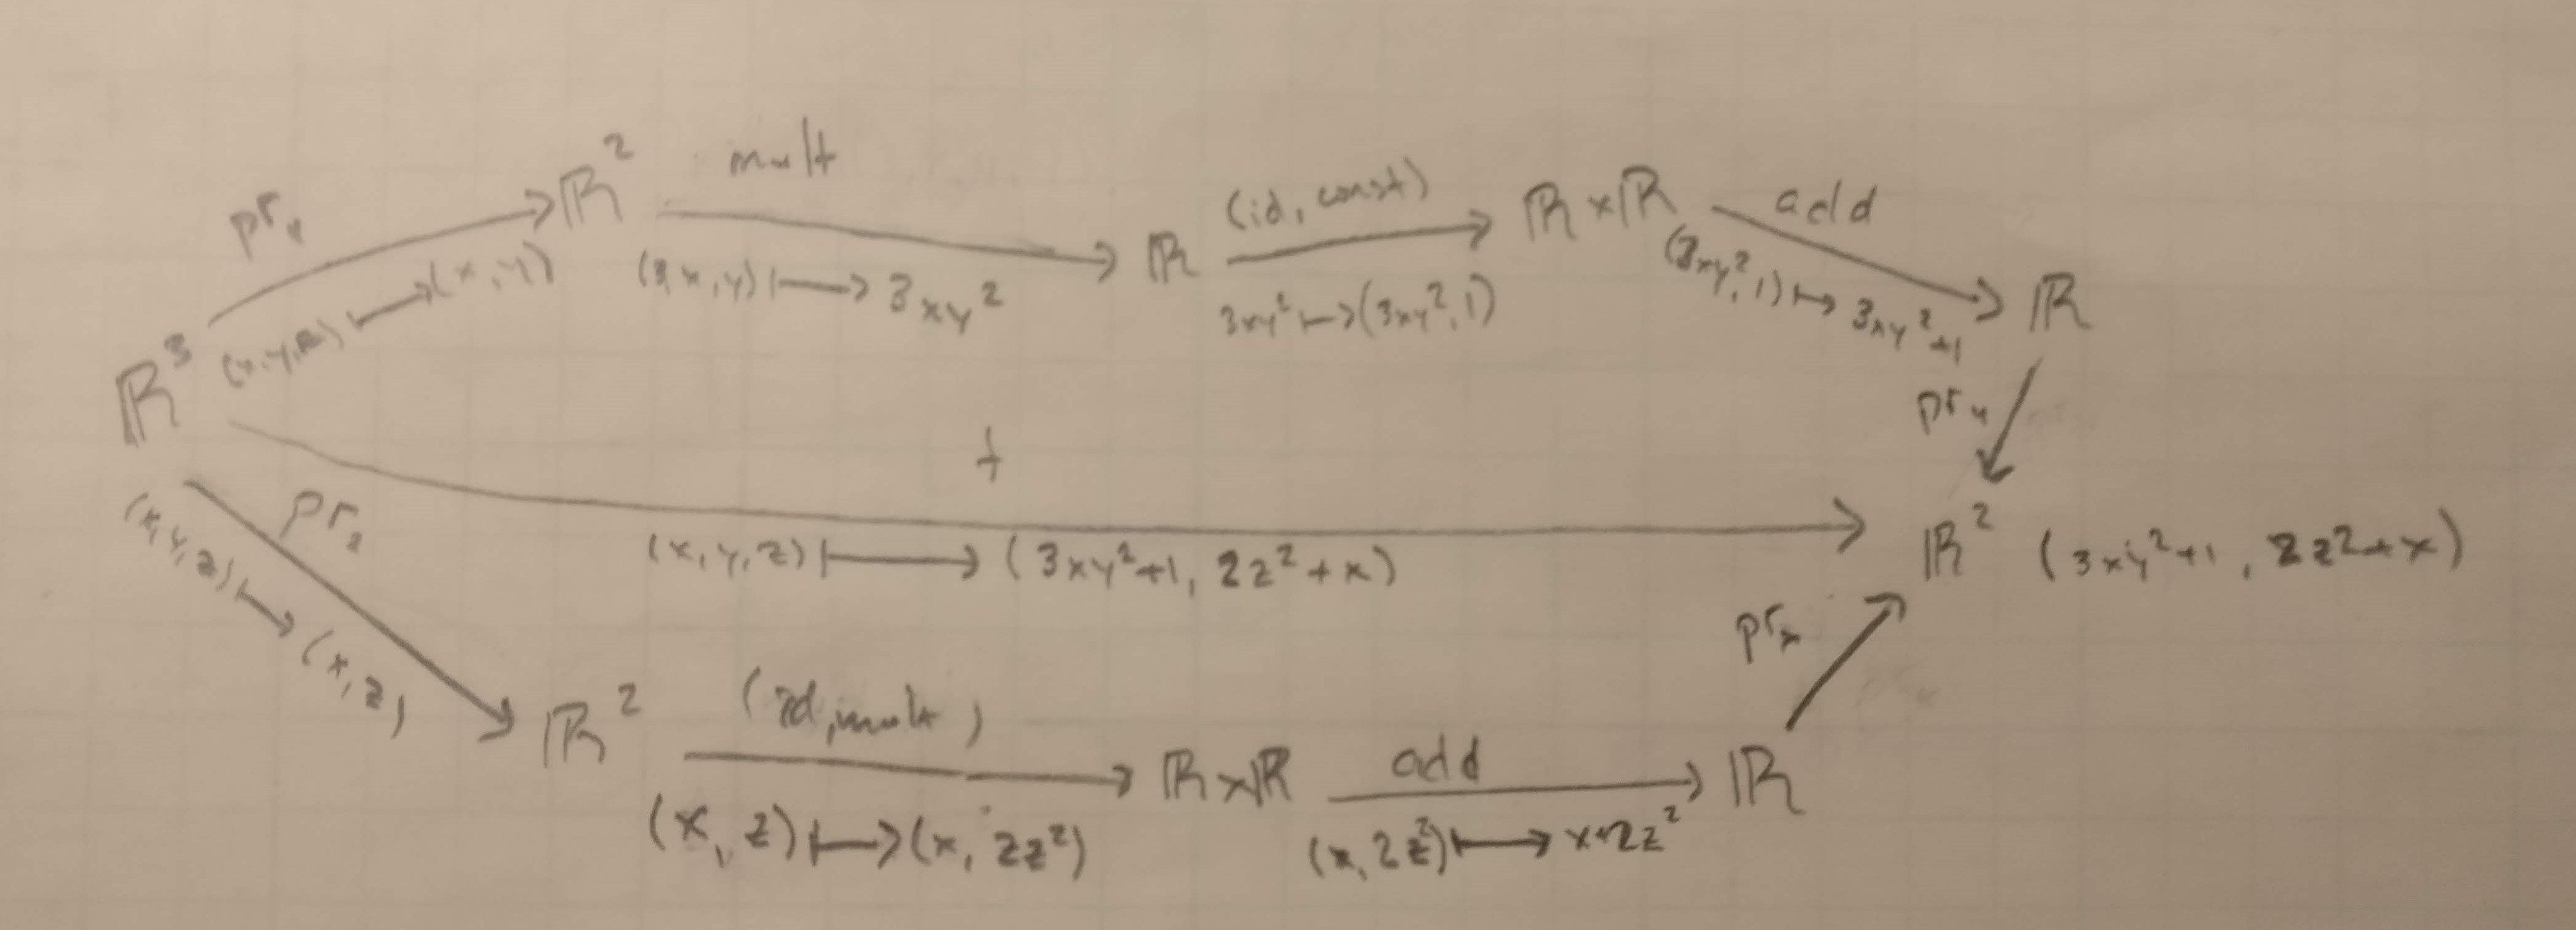 ℝ³
pr₁
(x,y,z) ↦ (x,y)
ℝ²
mult
(3,x,y) ↦ 3xy²
ℝ
(id, const)
3xy² ↦ (3xy²,1)
ℝ×ℝ
add
(3xy²,1) ↦ 3xy²+1
ℝ
pr₁
f
(x,y,z) ↦ (3xy²+1, 2z²+x)
ℝ² (3xy²+1, 2z²+x)
pr₂
(x,y,z) ↦ (x,z)
ℝ²
(id, mult)
(x,z) ↦ (x, 2z²)
ℝ×ℝ
add
(x,2z²) ↦ x+2z²
ℝ